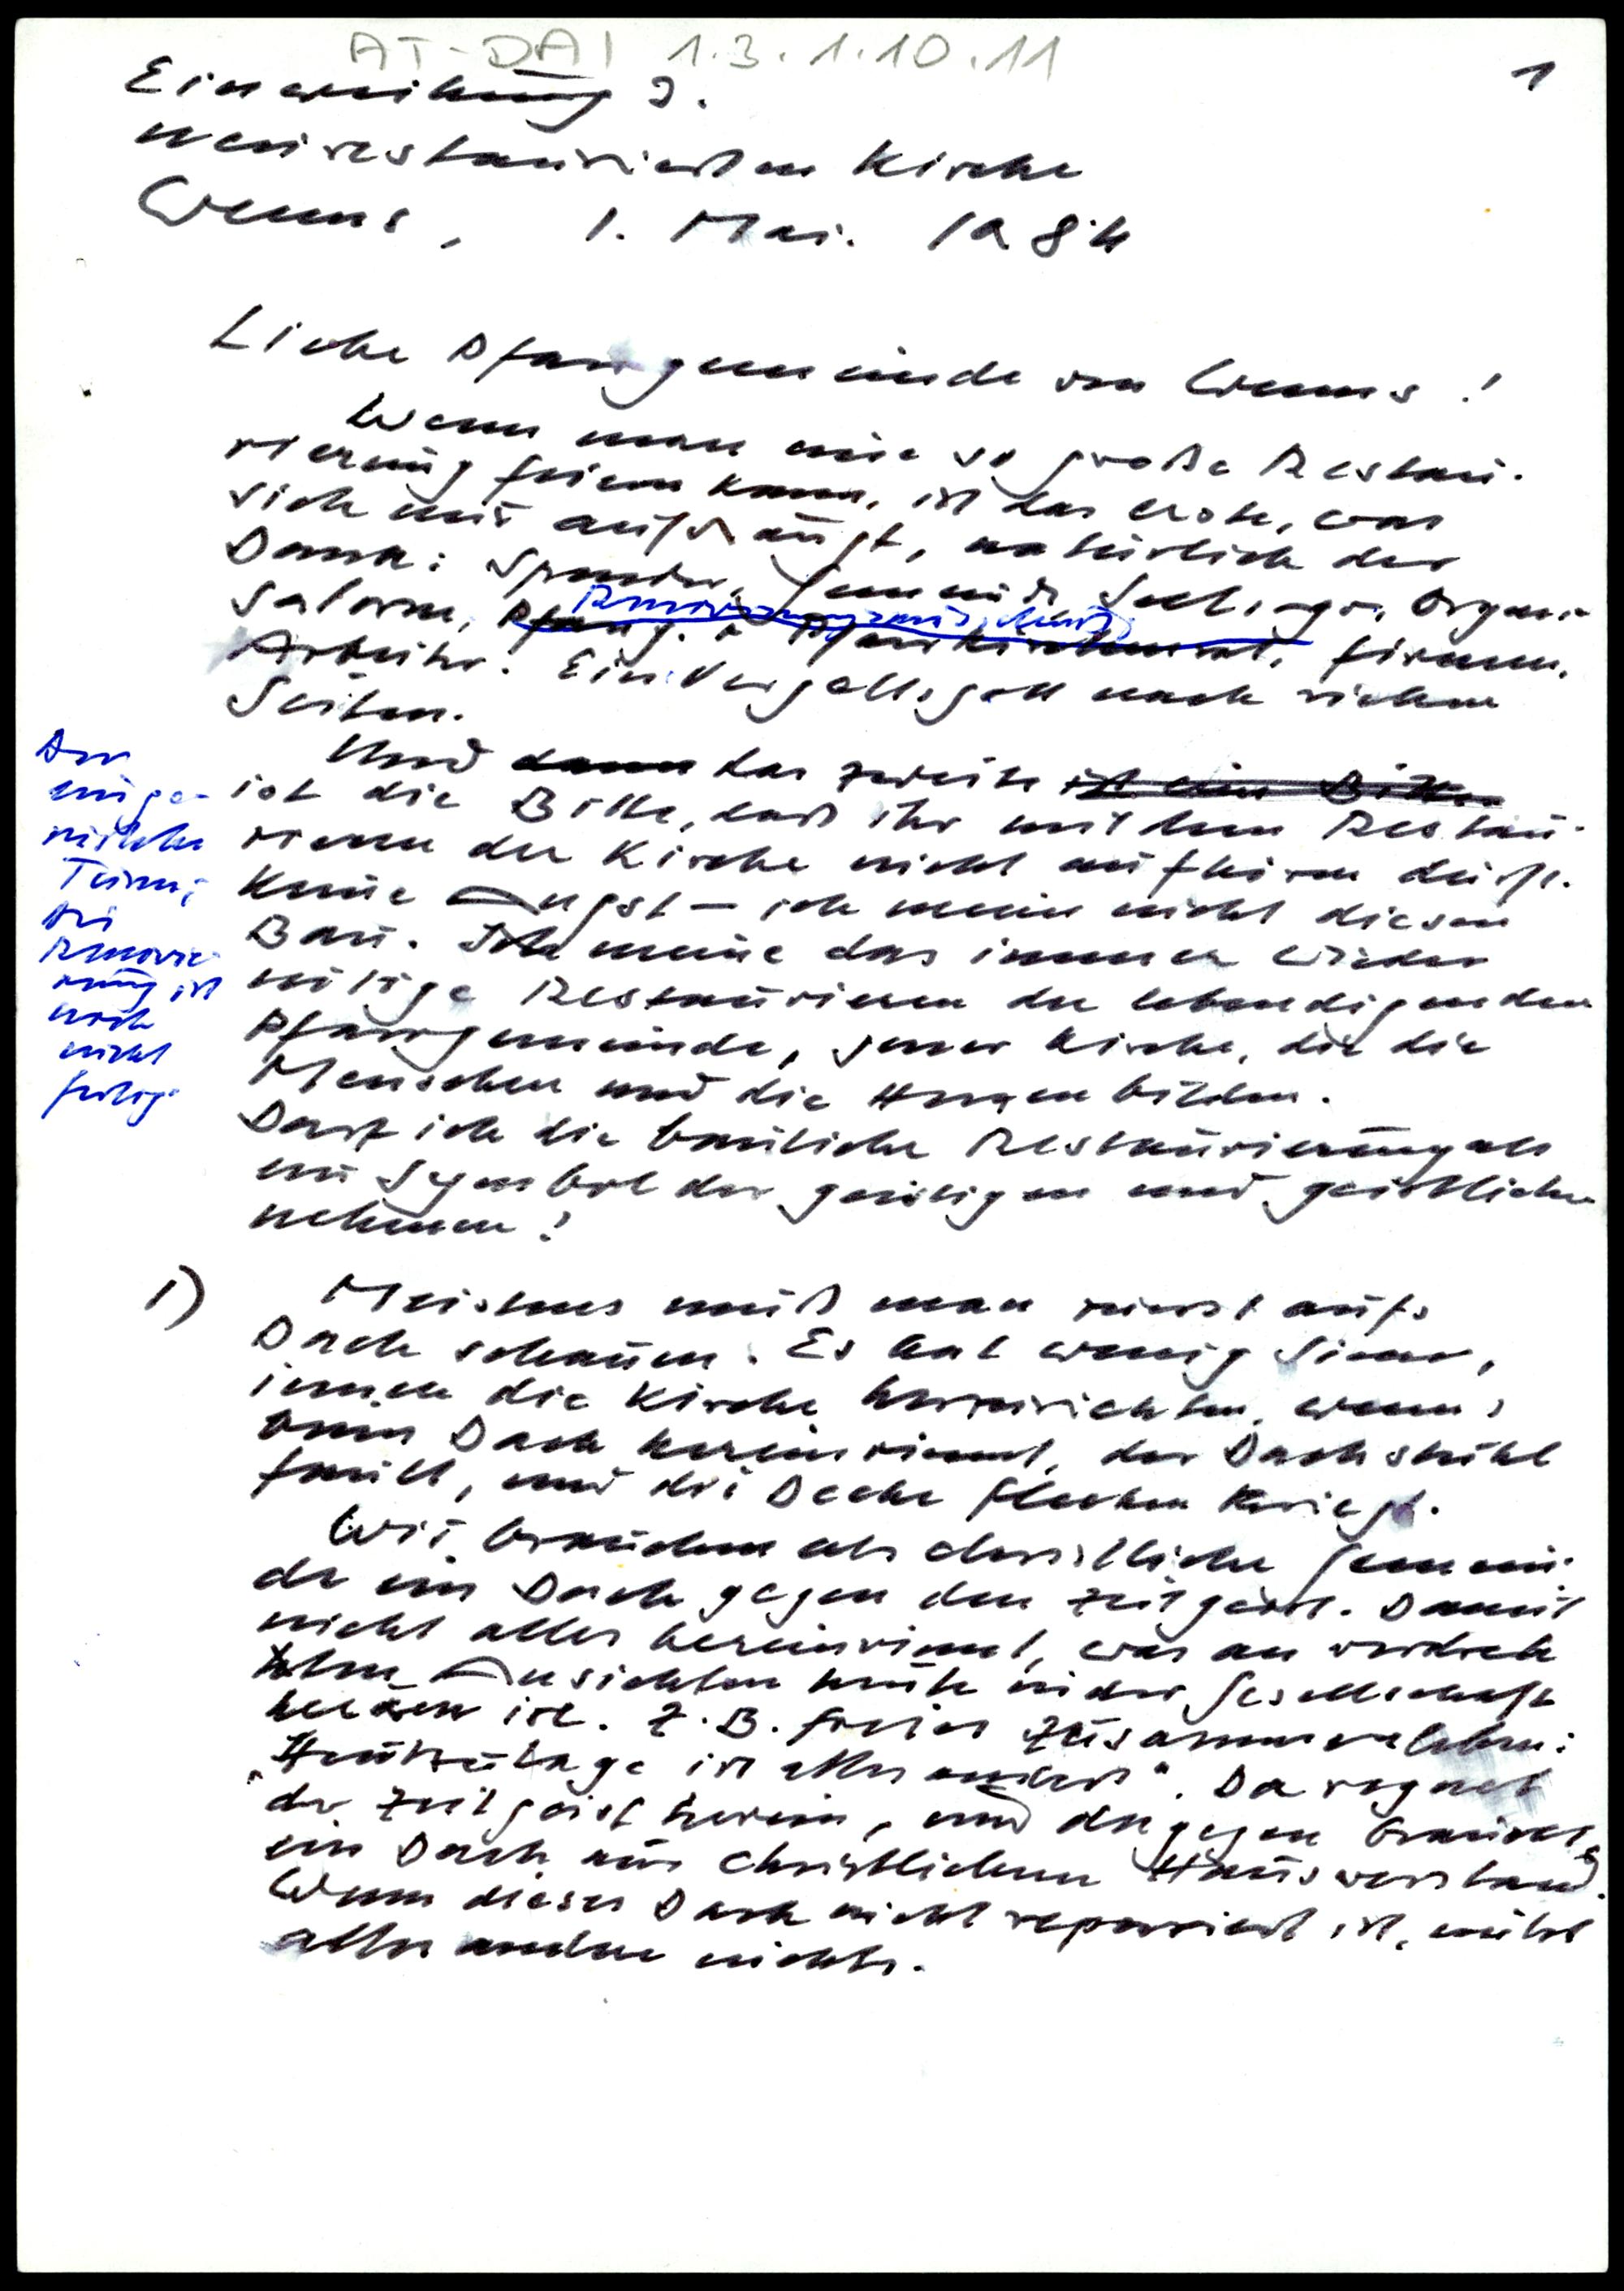 AT-DAI 1.3.1.10.11
1
Einweihung d.
neurestaurierten Kirche
Wenns, 1. Mai. 1984
Liebe Pfarrgemeinde von Wenns!
Wenn man eine so große Restau-
rierung feiern kann, ist das erste, was
sich mir aufdrängt, natürlich der
Dank: Spender, Gemeinde, Seelsorger, Organi-
satoren, Pfarrg. u Pfarrkirchenrat, Firmen,
Renovierungsausschuß
Arbeiter. Ein Vergeltsgott nach vielen
Seiten.
Und dann das zweite ist eine Bitte
ist die Bitte, daß ihr mit dem Restau-
rieren der Kirche nicht aufhören dürft.
Keine Angst – ich meine nicht diesen
Bau. Ich meine das immer wieder
nötige Restaurieren der lebendigen
Pfarrgemeinde, jener Kirche, die die
Menschen und die Herzen bilden.
Darf ich die bauliche Restaurierung als
ein Symbol der geistigen und geistlichen
nehmen!
Der
einge-
Turm;
die
Renovie-
rung ist
noch
nicht
fertig
1) Meistens muß man zuerst aufs
Dach schauen. Es hat wenig Sinn,
innen die Kirche herzurichten, wenns
beim Dach hereinrinnt, der Dachstuhl
fault, und die Decke Flecken kriegt.
Wir brauchen als christliche Gemein-
de ein Dach gegen den Zeitgeist. Damit
nicht alles hereinrinnt, was an verdreh
ten Ansichten heute in der Gesellschaft
ist. Z.B. freies Zusammenleben:
"Heutzutage ist alles anders". Da regnet
der Zeitgeist herein, und dagegen brauchts
ein Dach aus christlichem Hausverstand.
Wenn dieses Dach nicht repariert ist, nützt
alles andere nichts.